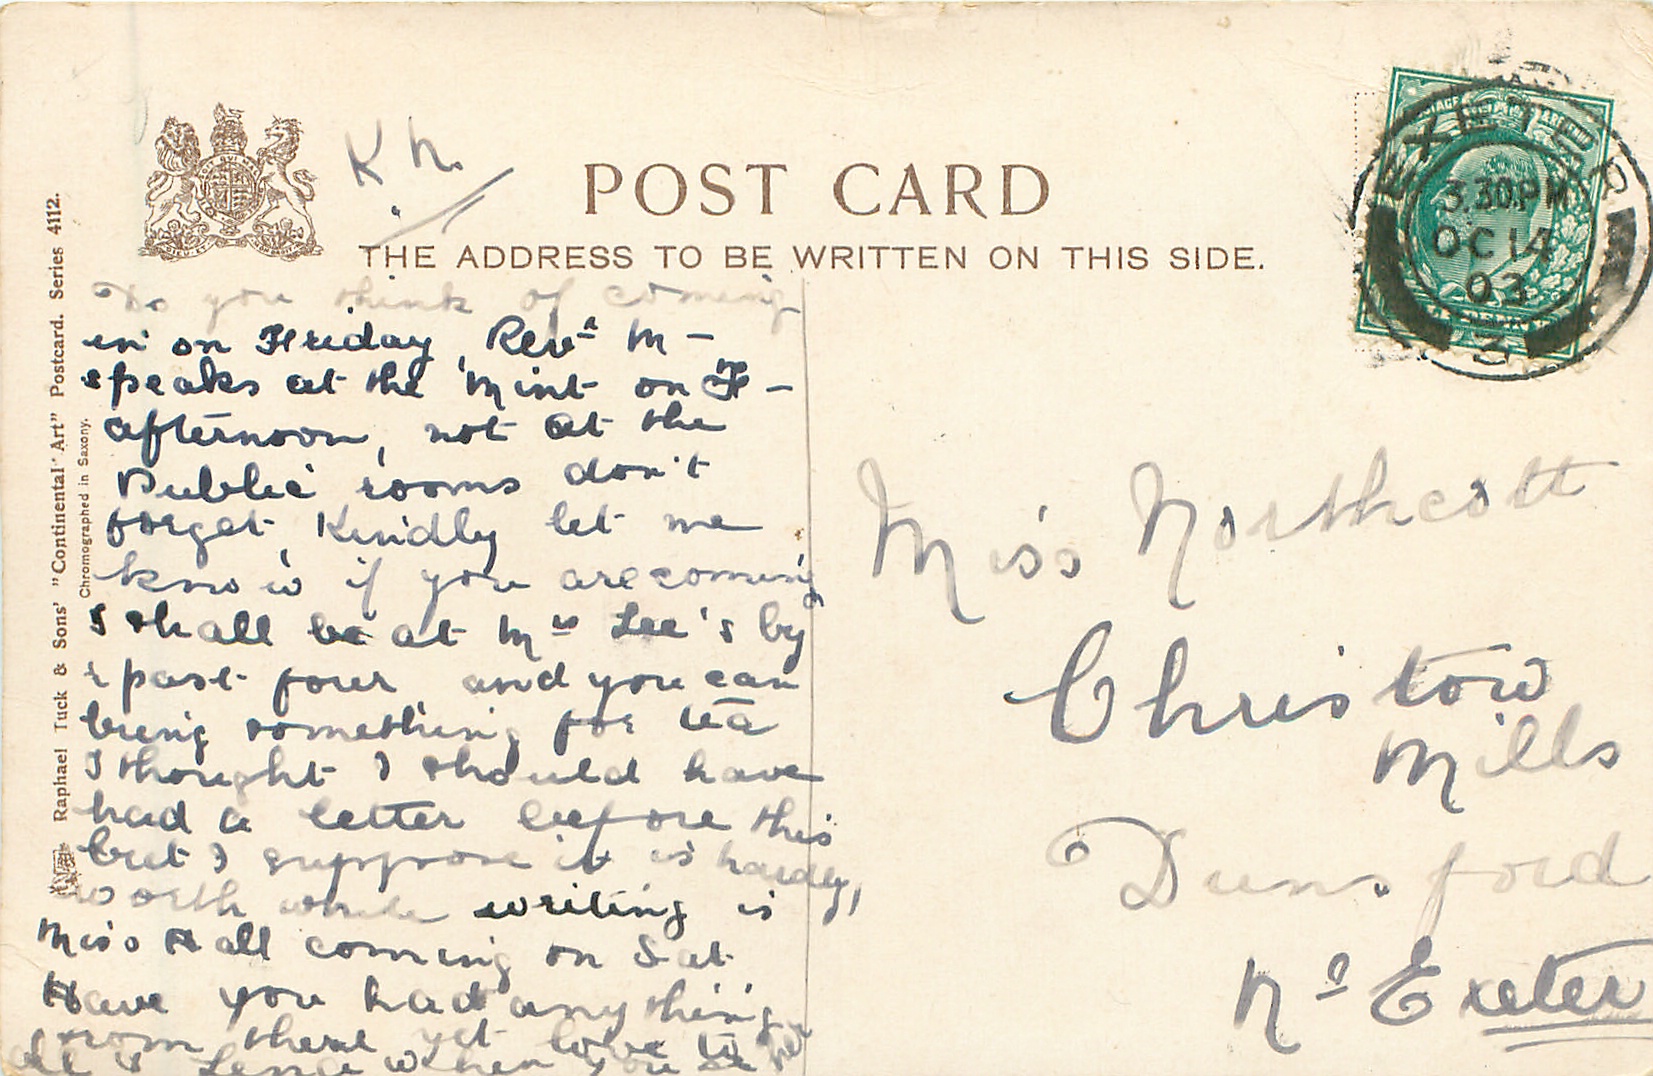 K N.
POST CARD
THE ADDRESS TO BE WRITTEN ON THIS SIDE.
EXETER
3.30.PM
OC 14
03
3
Raphael Tuck & Sons' "Continental Art" Postcard. Series 4112.
Chromographed in Saxony.
Do you think of coming
in on Friday, Revd M-
speaks at the Mint on F-
afternoon, not at the
Public rooms don't
forget, Kindly let me
know if you are coming
I shall be at Mrs Lee's by
past four and you can
bring something for tea
I thought I should have
had a letter before this
but I suppose it is hardly
worth while writing is
Miss Hall coming on Sat
Have you had anything
from there yet love to
all when you
Miss Northcott
Christow
Mills
Dunsford
Nr Exeter